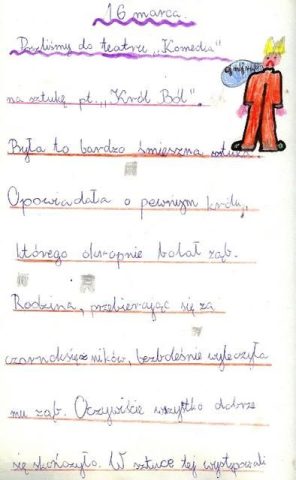 16 marca.
Poszliśmy do teatru „Komedia"
na sztukę pt. „Król Ból".
Była to bardzo śmieszna sztuka.
Opowiadała o pewnym królu,
którego okropnie bolał ząb.
Rodzina, przebierając się za
czarnoksiężników, bezboleśnie wyleczyła
mu ząb. Oczywiście wszystko dobrze
się skończyło. W sztuce tej występowali